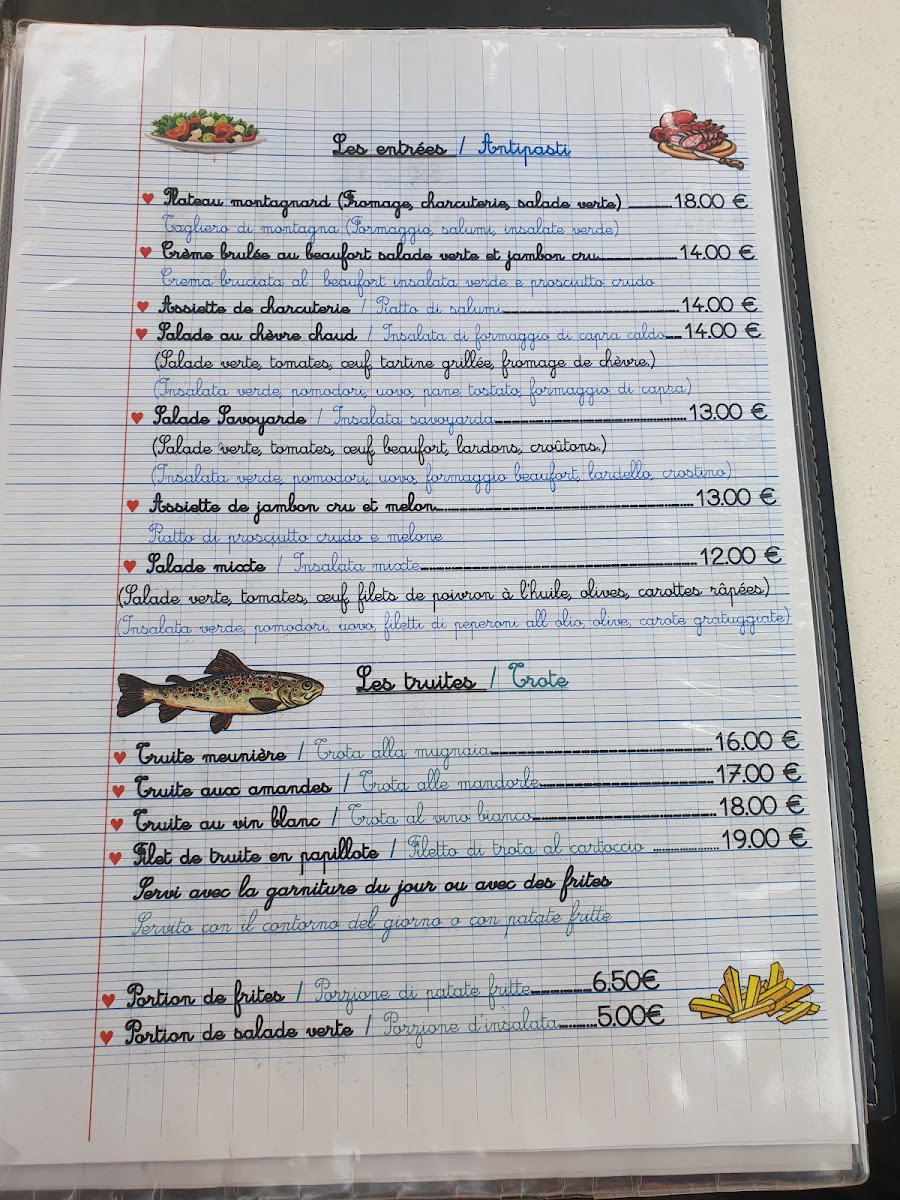 Les entrées / Antipasti
Plateau montagnard (Fromage, charcuterie, salade verte) 18.00 €
Tagliero di montagna (Formaggio, salumi, insalate verde)
Crème brulée au beaufort salade verte et jambon cru 14.00 €
Crema bruciata al beaufort insalata verde e prosciutto crudo
Assiette de charcuterie / Piatto di salumi 14.00 €
Salade au chèvre chaud / Insalata di formaggio di capra caldo 14.00 €
(Salade verte, tomates, œuf, tartine grillée, fromage de chèvre.)
(Insalata verde, pomodori, uovo, pane tostato, formaggio di capra)
Salade Savoyarde / Insalata savoyarda 13.00 €
(Salade verte, tomates, œuf, beaufort, lardons, croûtons.)
(Insalata verde, pomodori, uovo, formaggio beaufort, lardello, crostino)
Assiette de jambon cru et melon 13.00 €
Piatto di prosciutto crudo e melone
Salade mixte / Insalata mixte 12.00 €
(Salade verte, tomates, œuf, filets de poivron à l'huile, olives, carottes râpées)
(Insalata verde, pomodori, uovo, filetti di peperoni all olio, olive, carote gratuggiate)
Les truites / Trote
Truite meunière / Trota alla mugnaia 16.00 €
Truite aux amandes / Trota alle mandorle 17.00 €
Truite au vin blanc / Trota al vino bianco 18.00 €
Filet de truite en papillote / Filetto di trota al cartoccio 19.00 €
Servi avec la garniture du jour ou avec des frites
Servito con il contorno del giorno o con patate fritte
Portion de frites / Porzione di patate fritte 6.50€
Portion de salade verte / Porzione d'insalata 5.00€